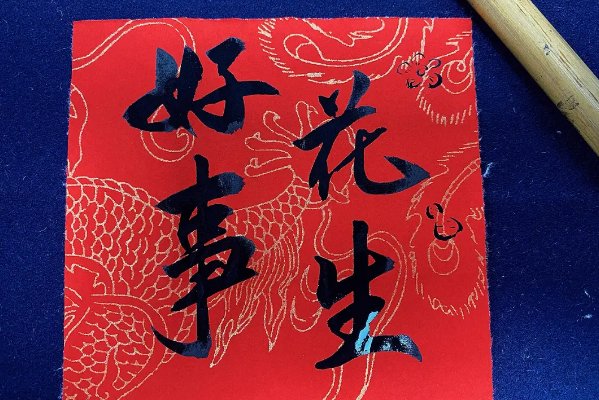 花生
好事